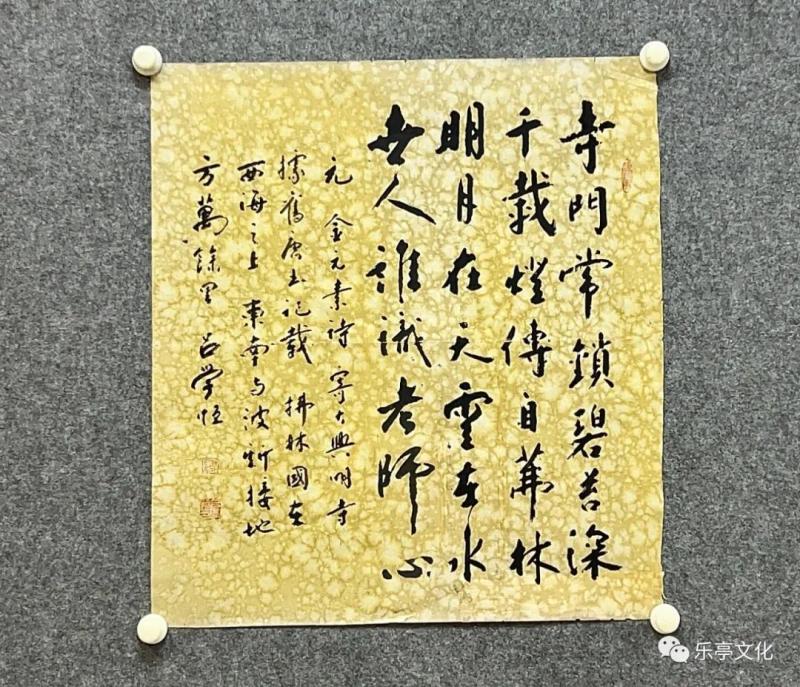 寺門常鎖碧苔深
千載燈傳自茀林
明月在天雲在水
世人誰識老師心
元 金元素詩 寄大興明寺
據舊唐書記載 拂林國在
西海之上 東南与波斯接地
方萬餘里 呂學恒
乐亭文化